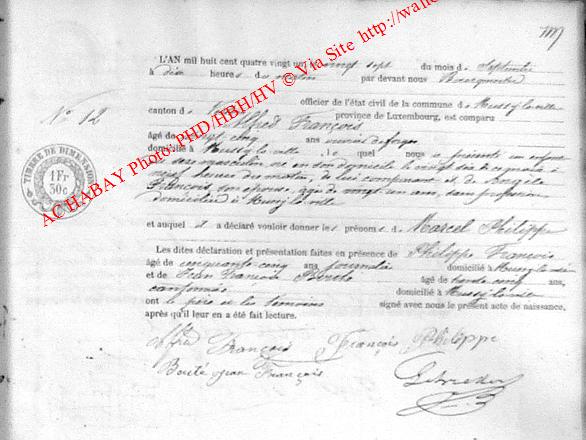 L'AN mil huit cent quatre vingt un vingt sept du mois de Septembre
à dix heures du matin par devant nous Bourgmestre
officier de l'état civil de la commune de Mussy la ville
canton de province de Luxembourg, est comparu
Alfred François
âgé de vingt cinq ans ouvrier de forges
domicilié à Mussy la ville lequel nous a présenté un enfant
de sexe masculin né en son domicile le vingt six
neuf heures du matin, de lui comparant et de
François, son épouse, agée de vingt un ans, sans profession
domiciliée à Mussy la ville
et auquel il a déclaré vouloir donner les prénoms de Marcel Philippe
Les dites déclaration et présentation faites en présence de Philippe François
âgé de cinquante cinq ans journalier domicilié à Mussy la ville
et de Jean François Bouté âgé de trente cinq ans,
domicilié à Mussy la ville
ont le père et les témoins signé avec nous le présent acte de naissance,
après qu'il leur en a été fait lecture.
Alfred François François Philippe
Bouté jean François
N° 12
TIMBRE DE DIMENSION
1 Fr
30c
ACHABAY Photo PHD/HBH/HV © Via Site http://wall